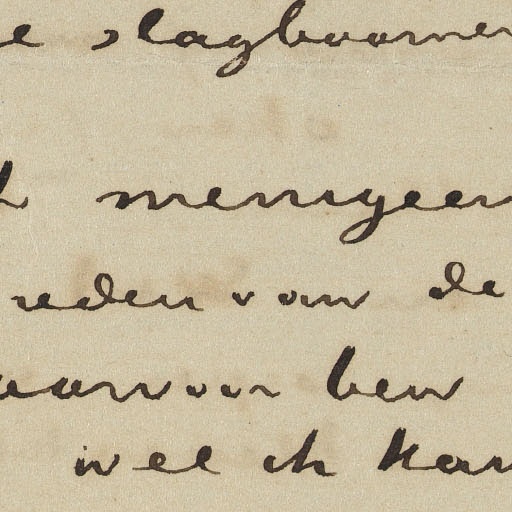 e slagboomen
menigeen
reden van de
waarvoor ben
wel ik kan